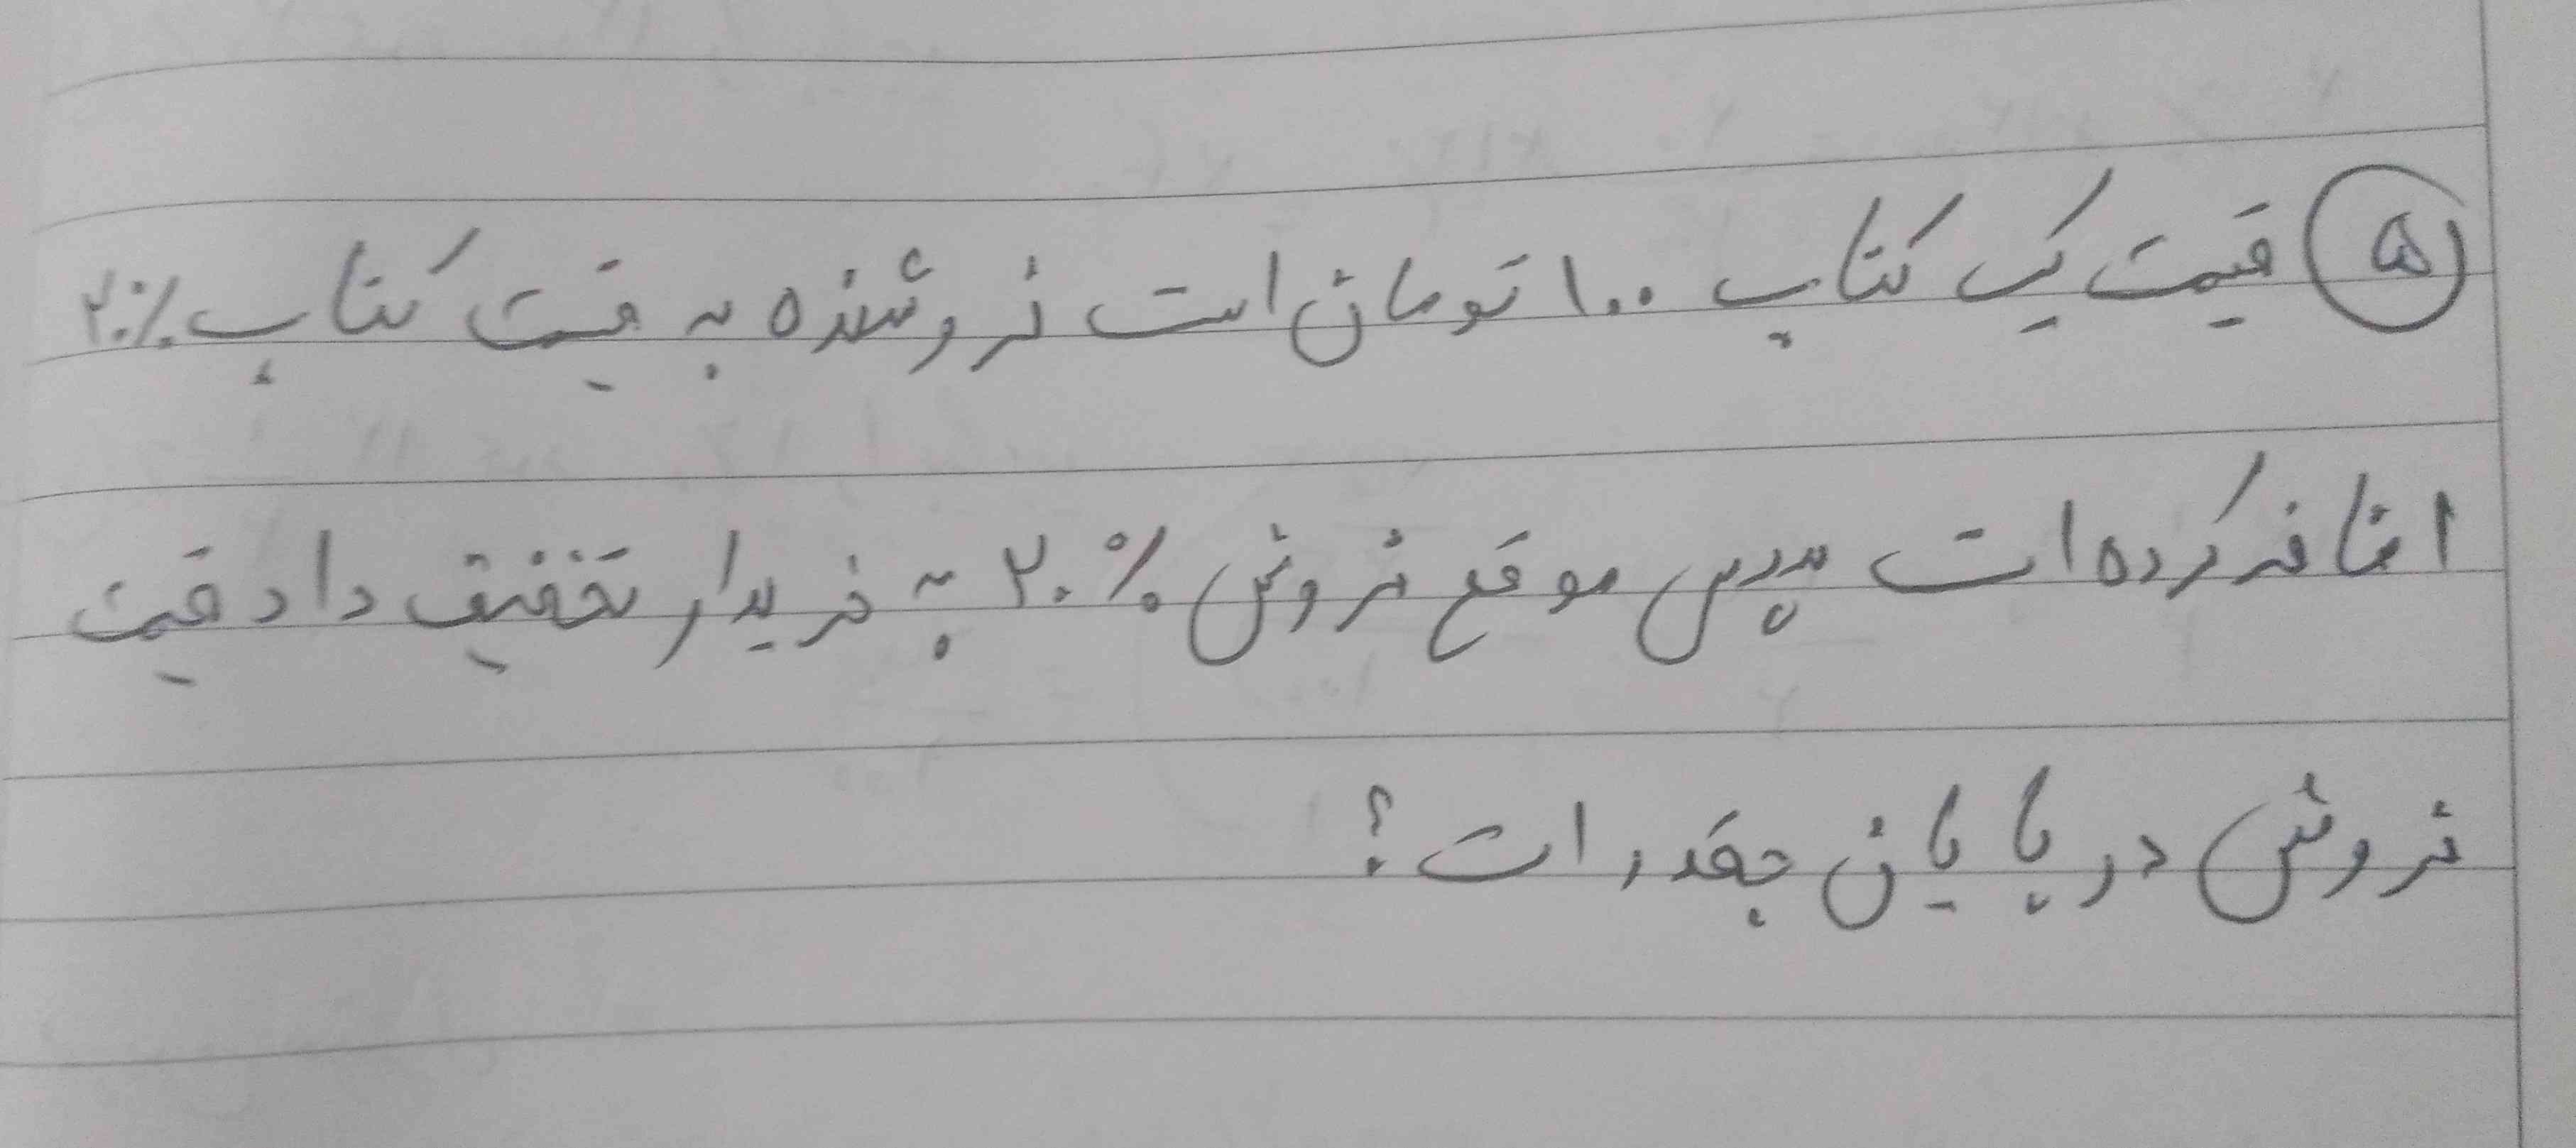 ۵ قیمت یک کتاب ۱۰۰ تومان است فروشنده به قیمت کتاب ۲۰٪
اضافه کرده است سپس موقع فروش ۲۰٪ به خریدار تخفیف داد قیمت
فروش در پایان چقدر است؟